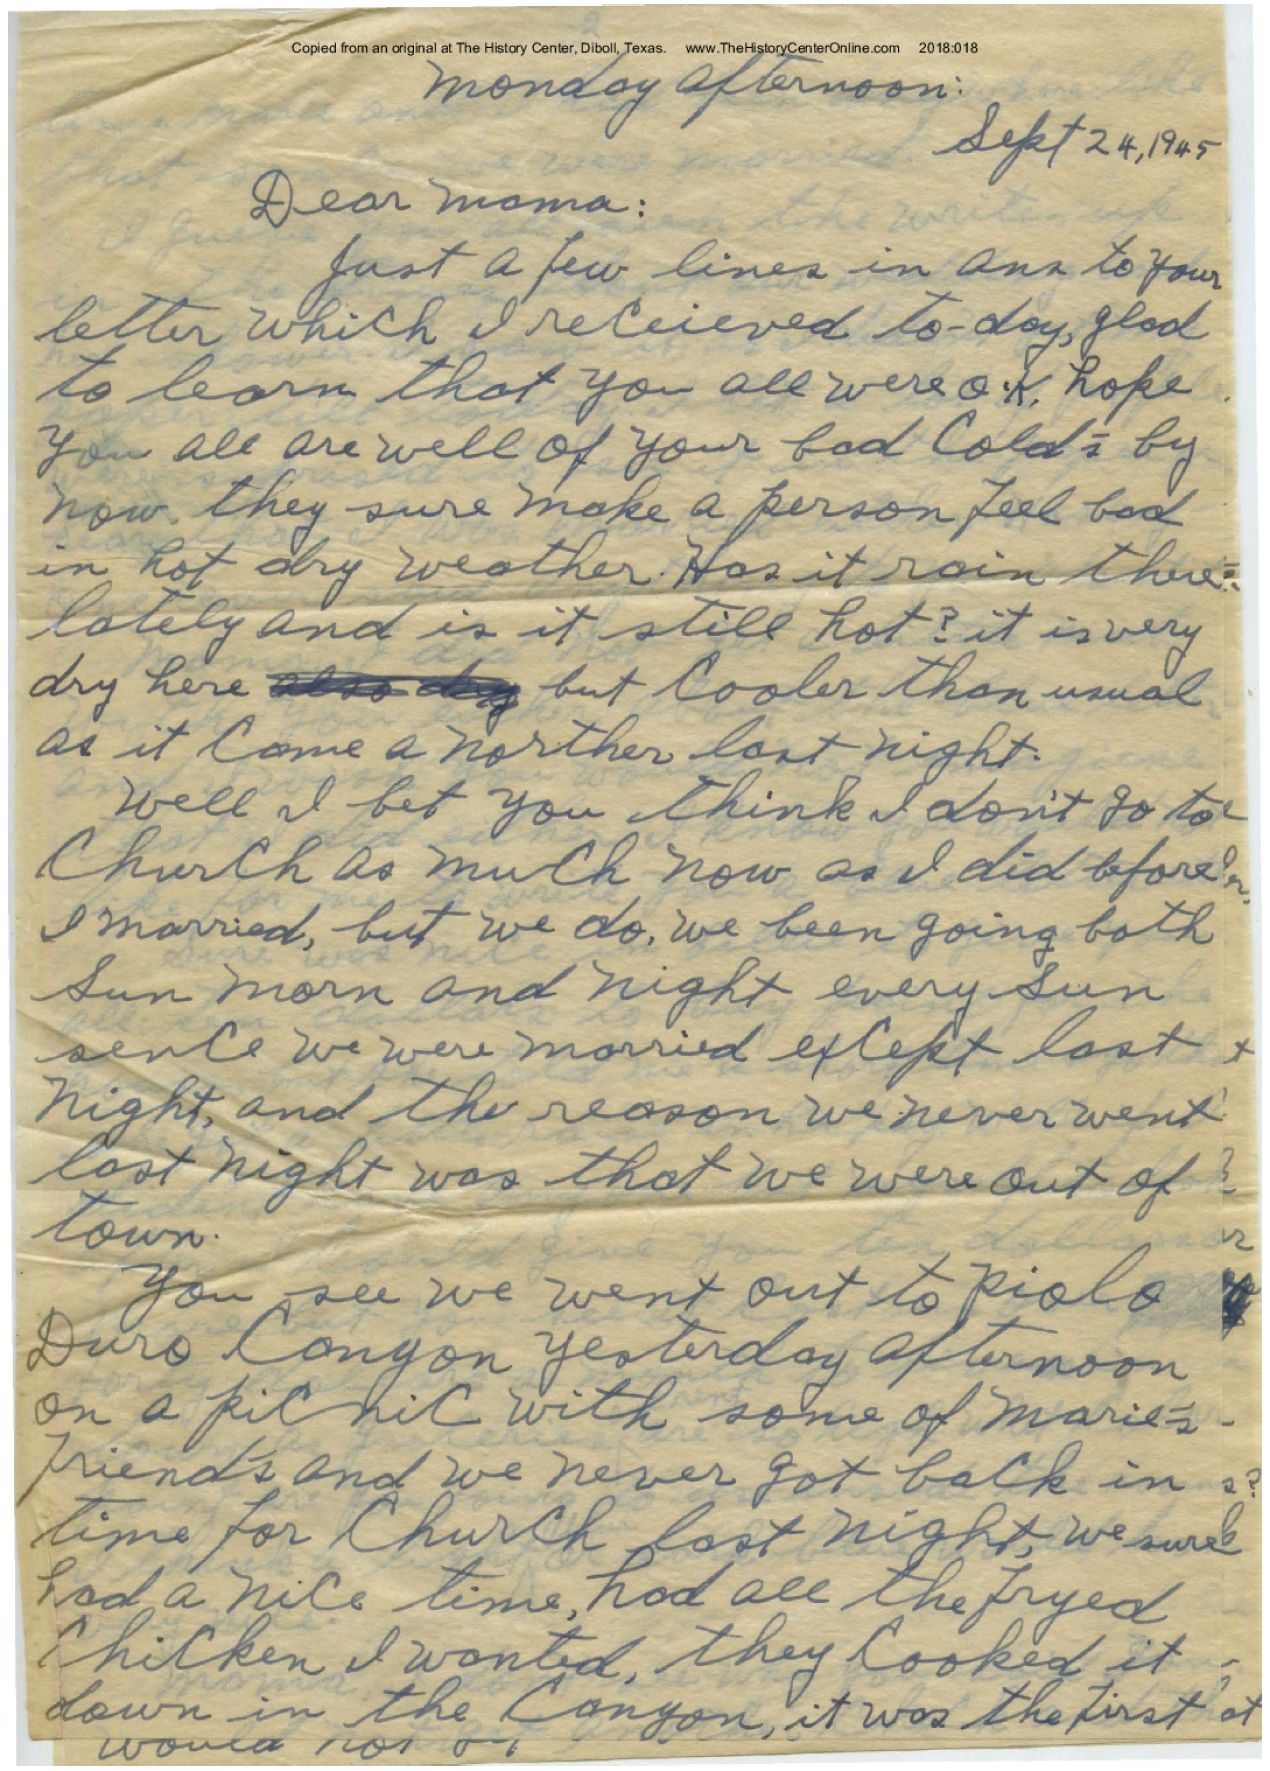 Copied from an original at The History Center, Diboll, Texas. www.TheHistoryCenterOnline.com 2018:018
Monday afternoon:
Sept 24, 1945
Dear Mama:
Just a few lines in ans to your
letter which I receieved to-day, glad
to learn that you all were o.K. hope
you all are well of your bad Cold's by
now. they sure make a person feel bad
in hot dry weather. Has it rain there
lately and is it still hot? it is very
dry here also dry but Cooler than usual
as it Came a norther last night.
Well I bet you think I don't go to
Church as much now as I did before
I married, but we do. we been going both
Sun morn and night every Sun
sence we were married except last
night, and the reason we never went
last night was that we were out of
town.
You see we went out to Piolo
Duro Canyon yesterday afternoon
on a picnic with some of Marie's
Friend's and we never got back in
time for Church last night, we sure
had a nice time, had all the fryed
Chicken I wanted, they Cooked it
down in the Canyon, it was the first
would not